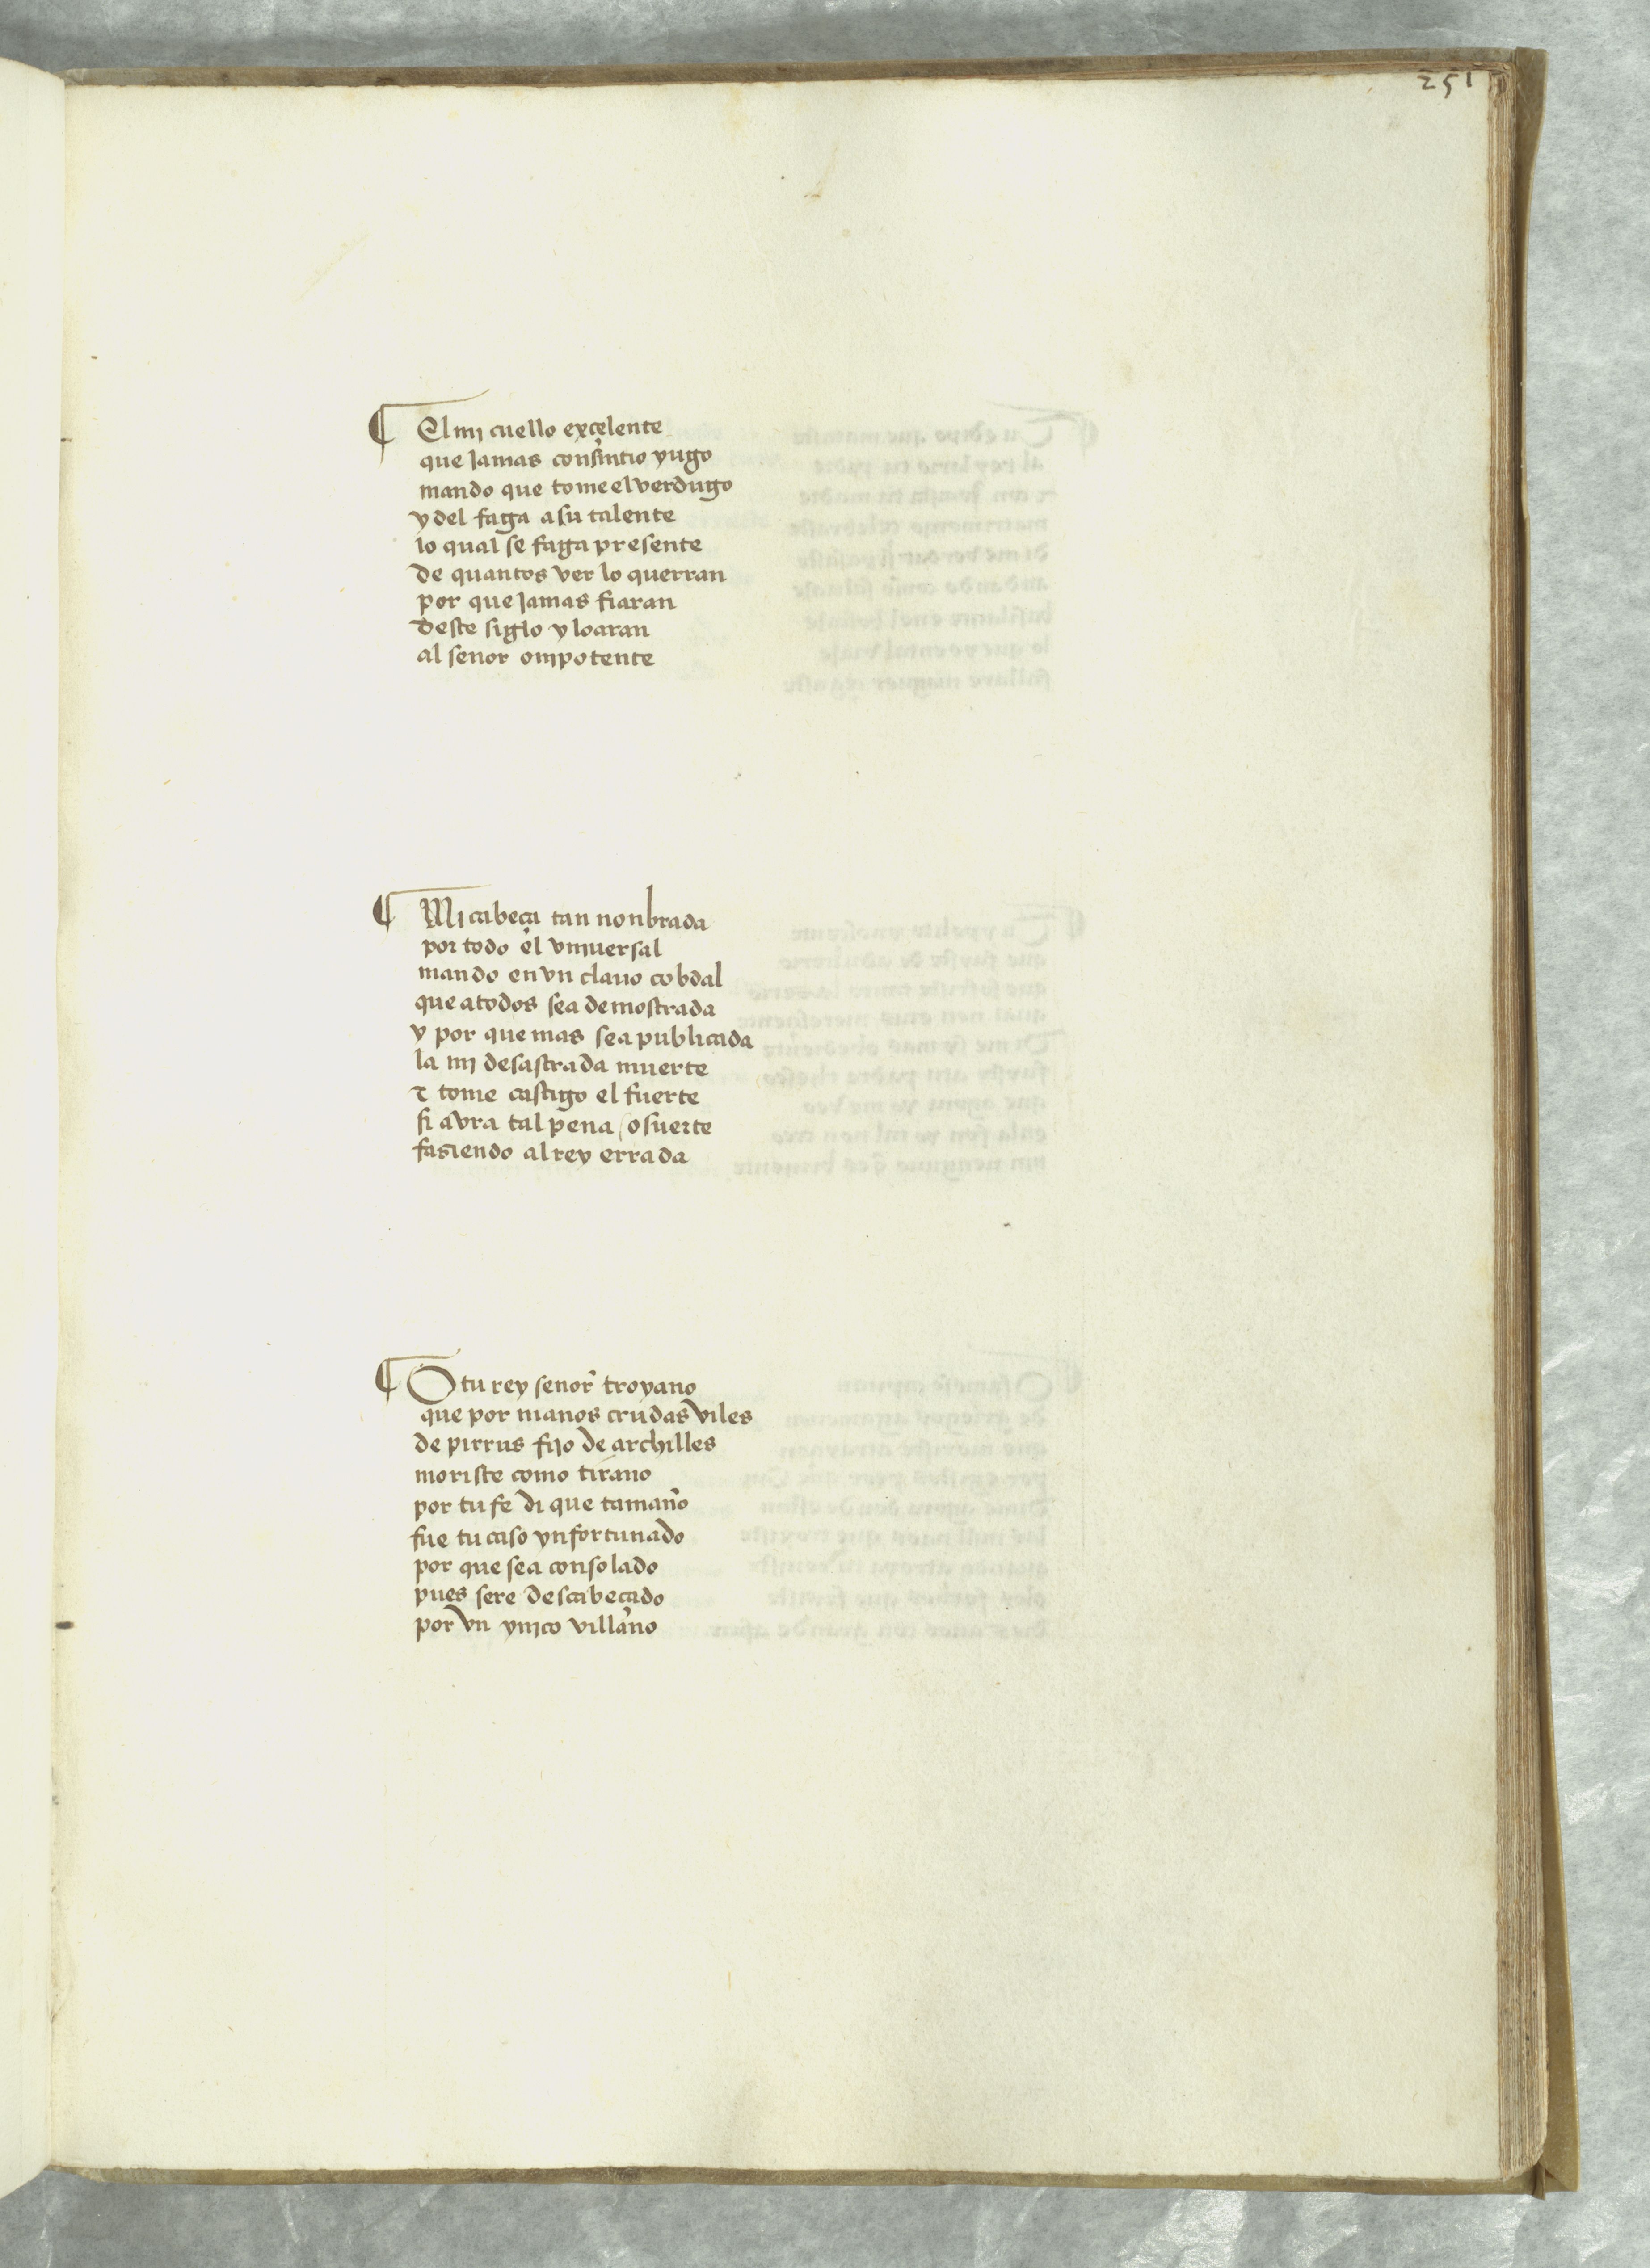 251
¶ El mi cuello excelente
que jamas consintio yugo
mando que tome el verdugo
y del faga a su talente
lo qual se faga presente
de quantos ver lo querran
por que jamas fiaran
deste siglo y loaran
al senor onipotente
¶ Mi cabeça tan nonbrada
por todo el vniuersal
mando en vn clauo cobdal
que a todos sea demostrada
y por que mas sea publicada
la mi desastrada muerte
τ tome castigo el fuerte
si avra tal pena / o suerte
fasiendo al rey errada
¶ O tu rey senor troyano
que por manos crudas viles
de pirrus fijo de archilles
moriste como tirano
por tu fe di que tamaño
fue tu caso ynfortunado
por que sea consolado
pues sere descabecado
por vn ynico villano